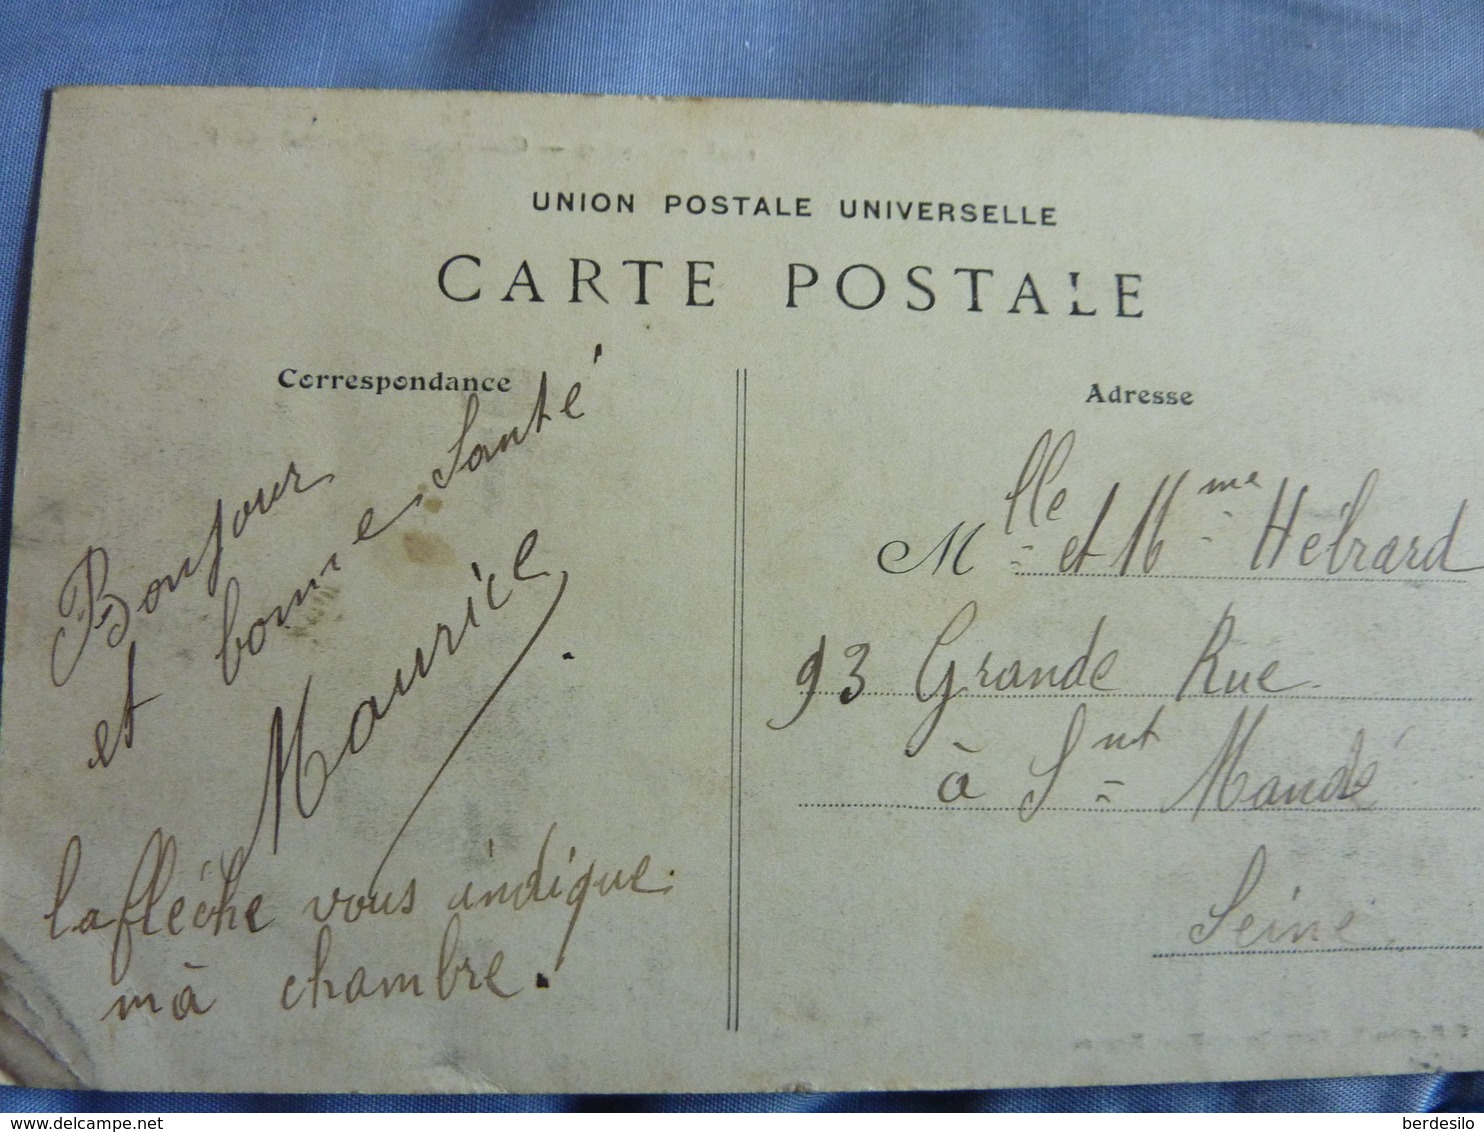 UNION POSTALE UNIVERSELLE
CARTE POSTALE
Correspondance
Bonjour
et bonne Santé
Maurice
la flèche vous indique
mà chambre.
Adresse
Mlle et Mme Hébrard
93 Grande Rue
à Snt Mandé
Seine
delcampe.net
berdesilo